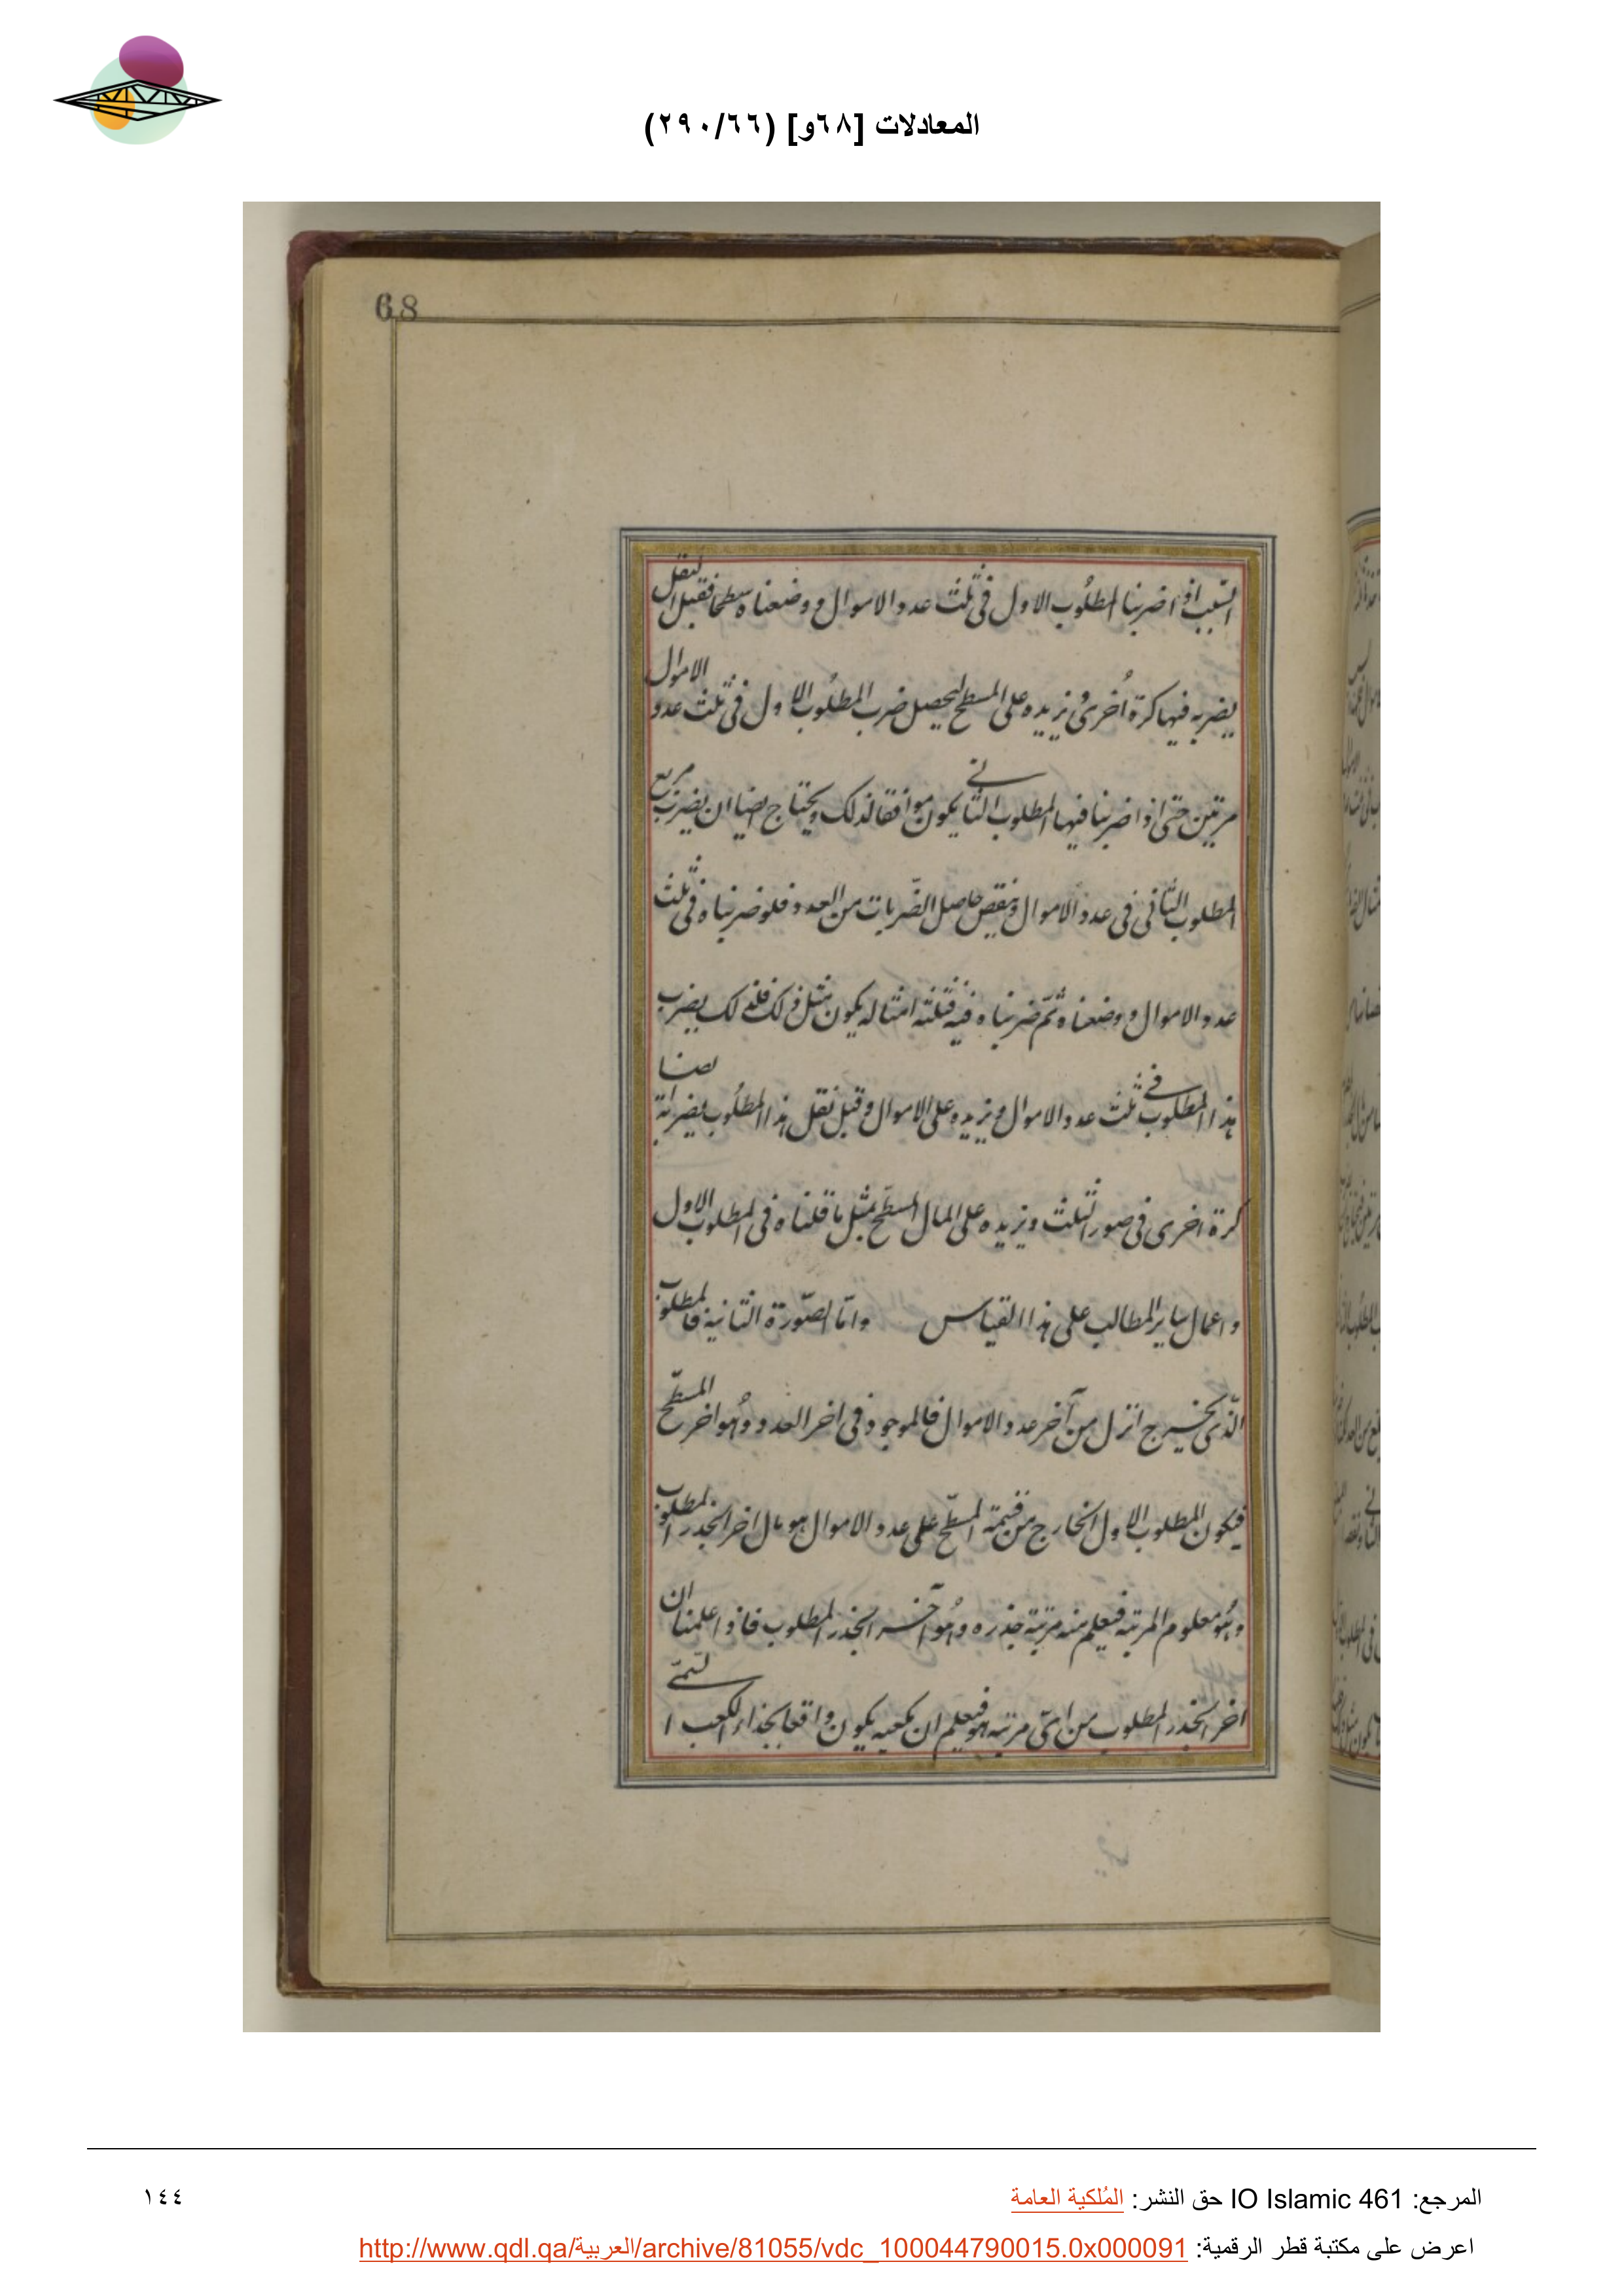 المعادلات [٦٨و] (٢٩٠/٦٦)
68
السبب اذا ضربنا المطلوب الاول فى ثلث عدد الاموال ووضعناه سطحا فقبل النقل
يضربه فيها كرة اُخرىٰ ونزيده على المسطح ليحصل ضرب المطلوب الاول فى ثلث عدد الاموال
مرتين حتى اذا ضربنا فيها المطلوب الثانى يكون موافقا لذلك ويحتاج ايضا ان يضرب مربع
المطلوب الثانى فى عدد الاموال وينقص حاصل الضربات من العدد فلو ضربناه فى ثلث
عدد الاموال ووضعناه ثم ضربناه فيه فثلثة امثاله يكون مثل ذلك فلذلك يضرب
هذا المطلوب فى ثلث عدد الاموال ونزيده على الاموال وقبل نقل هذا المطلوب يضرابة ايضا
كرة اخرى فى صور الثلث ونزيده على المال المسطح بمثل ما قلناه فى المطلوب الاول
واعمال ساير المطالب على هذا القياس واما الصورة الثانية فالمطلوب
الذى يخرج انزل من آخر عدد الاموال فالموجود فى اخر العدد وهو اخر المسطح
فيكون المطلوب الاول الخارج من قسمة المسطح على عدد الاموال هو مال اخر الجذر المطلوب
وهو معلوم المرتبه فيعلم منه مرتبة جذره وهو آخر الجذر المطلوب فاذا علمنا ان
اخر الجذر المطلوب من اىّ مرتبه هو فيعلم ان مكعبه يكون واقعا بحذاء الكعب
المرجع: IO Islamic 461 حق النشر: المُلكية العامة
١٤٤
اعرض على مكتبة قطر الرقمية: http://www.qdl.qa/العربية/archive/81055/vdc_100044790015.0x000091